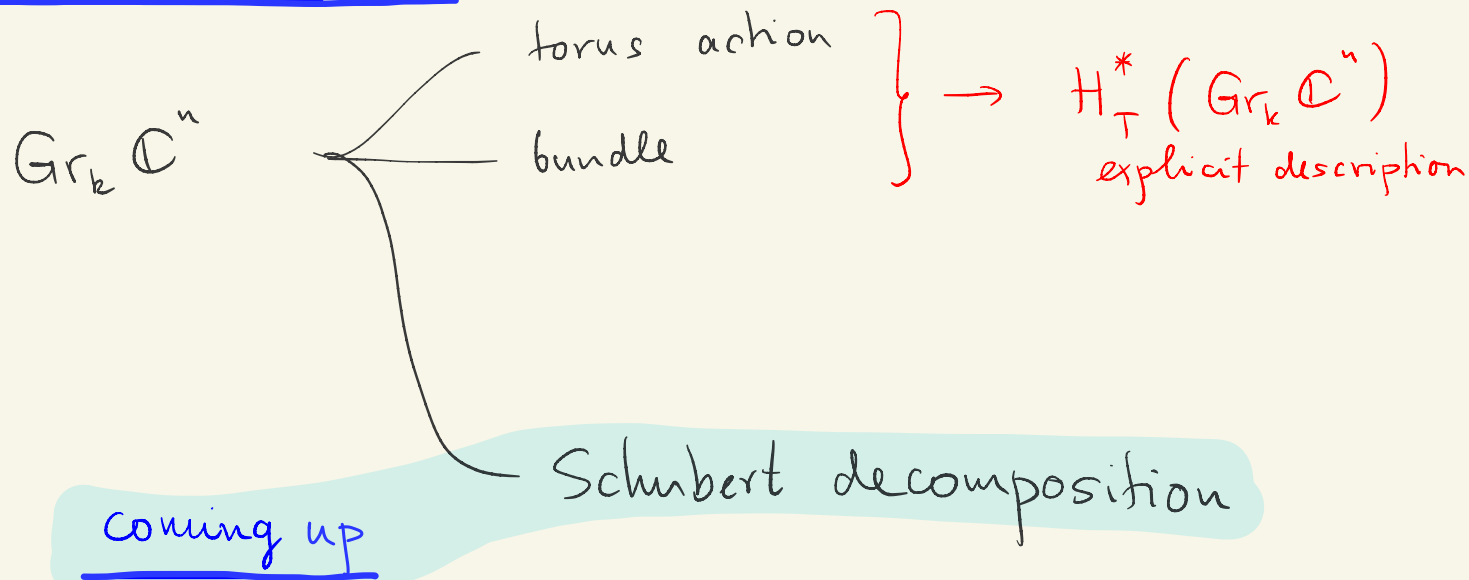 torus action
Gr_k ℂ^n
bundle
→ H^*_T (Gr_k ℂ^n)
explicit description
Schubert decomposition
coming up